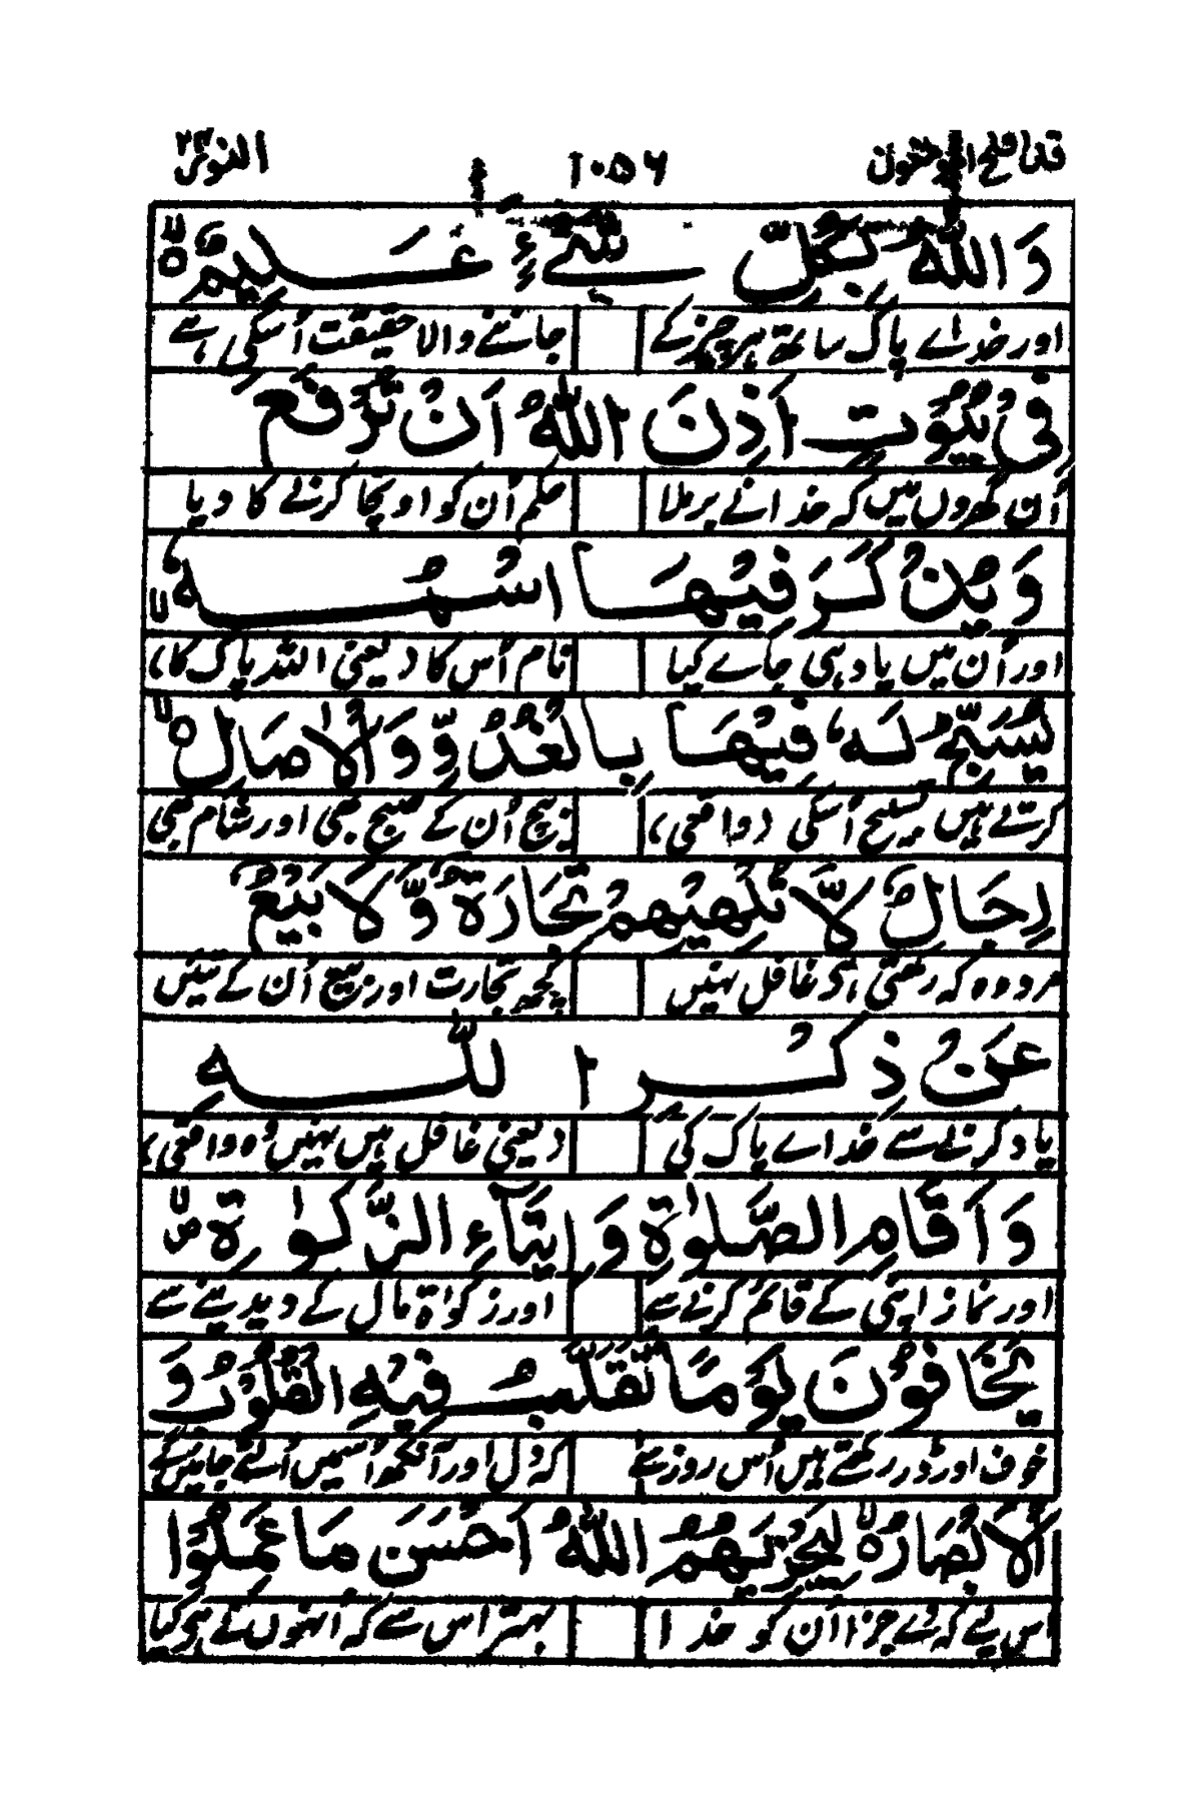 قد افلح المؤمنون ١٠٥٦ النور ٢٤
وَاللّٰهُ بِكُلِّ شَیْءٍ عَلِیْمٌ ۙ
اور خداے پاک ساتھ ہر چیز کے جاننے والا حقیقت اُسکی ہے
فِیْ بُیُوْتٍ اَذِنَ اللّٰهُ اَنْ تُرْفَعَ
اُن گھروں میں کہ خدا نے برملا حکم اُن کو اونچا کرنے کا دیا
وَیُذْكَرَ فِیْهَا اسْمُهٗ ۙ
اور اُن میں یاد ہی جاے کیا نام اُس کا (یعنی اللہ پاک کا)
یُسَبِّحُ لَهٗ فِیْهَا بِالْغُدُوِّ وَالْاٰصَالِ ۙ
کرتے ہیں تسبیح اُسکی (واقعی) بیچ اُن کے صبح بھی اور شام بھی
رِجَالٌ لَّا تُلْهِیْهِمْ تِجَارَةٌ وَّلَا بَیْعٌ
مرد وہ کہ رکھتی ہی غافل نہیں کچھ تجارت اور بیع اُن کے تئیں
عَنْ ذِكْرِ اللّٰهِ
یاد کرنے سے خداے پاک کی (یعنی غافل ہیں نہیں وہ واقعی)
وَاَقَامِ الصَّلٰوةِ وَاِیْتَآءِ الزَّكٰوةِ ۙ
اور نماز اپنی کے قائم کرنے سے اور زکوٰة مال کے دیدینے سے
یَخَافُوْنَ یَوْمًا تَتَقَلَّبُ فِیْهِ الْقُلُوْبُ وَ
خوف اور ڈر رکھتے ہیں اُس روز سے کہ دل اور آنکھ اُسمیں اُلٹے جائیں گے
الْاَبْصَارُ ۙ لِیَجْزِیَهُمُ اللّٰهُ اَحْسَنَ مَا عَمِلُوْا
اس لیے کہ دے جزا اُن کو خدا بہتر اس سے کہ اُنہوں نے ہی کیا